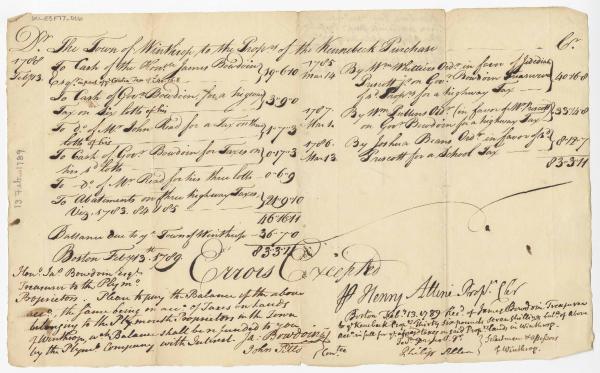 Dr. The Town of Winthrop to the Proprs of the Kennebeck Purchase Cr.
1788
Feb 13. To Cash of the Honble James Bowdoin
Esqr 39-6-10
To Cash of Govr Bowdoin for a highway
Tax on Six lotts of his 3-9-0
To Do of Mr John Read for a Tax on three
lotts of his 1-7-3
To Cash of Govr Bowdoin for Taxes on
his sd lotts 0-17-3
To Do of Mr Read for his three lotts 0-6-9
To Abatements on three highway Taxes
Viz. 1783. 84 & 85 21-9-10
46-16-11
Ballance due to ye Town of Winthrop 36-7-0
83-3-11
Boston Feby 13th 1789
1785
Mar 14 By Wm Whittiers Ordr in favor of Jedidiah
Prescott on Govr Bowdoin Treasurer
of sd Proprs for a highway Tax 40-16-8
1787
Mar 2 By Wm Pullens Ordr in favor of Mr Prescott
on Govr Bowdoin for a highway Tax 33-14-8
1786
Mar 13 By Joshua Beans Ordr in favor of sd
Prescott for a School Tax 8-12-7
83-3-11
Errors Excepted
Henry Alline Proprs Clk
Honl Jas Bowdoin Esqr
Treasurer to the Plymo
Proprietors. Please to pay the Balance of the above
acct, the same being on acct of Taxes on Lands
belonging to the Plymouth Proprietors in the Town
of Winthrop, wch Balance shall be refunded to you
by the Plymo Company with Interest.
Ja. Bowdoin
John Pitts
Comtee
Boston Feb. 13. 1789 Recd of James Bowdoin Treasurer
to ye Kennebek Proprs Thirty six pounds seven shillings balce of above
acct in full for ye aforesd taxes on said Proprs lands in Winthrop.
Philip Allen
Selectmen & Assessors
of Winthrop.
13 Feb. 1789